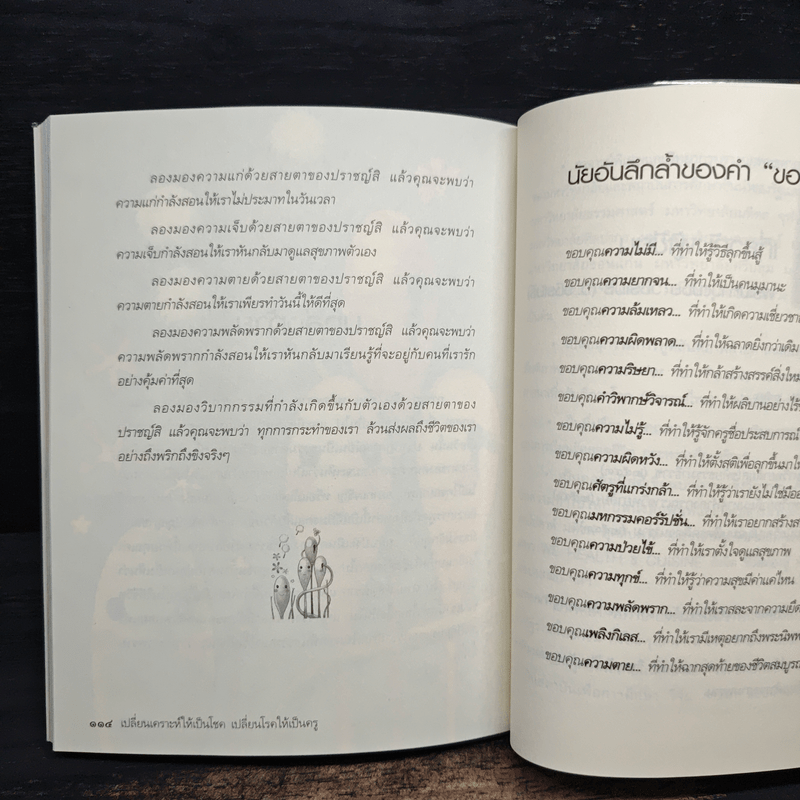 ลองมองความแก่ด้วยสายตาของปราชญ์สิ แล้วคุณจะพบว่า
ความแก่กำลังสอนให้เราไม่ประมาทในวันเวลา
ลองมองความเจ็บด้วยสายตาของปราชญ์สิ แล้วคุณจะพบว่า
ความเจ็บกำลังสอนให้เราหันกลับมาดูแลสุขภาพตัวเอง
ลองมองความตายด้วยสายตาของปราชญ์สิ แล้วคุณจะพบว่า
ความตายกำลังสอนให้เราเพียรทำวันนี้ให้ดีที่สุด
ลองมองความพลัดพรากด้วยสายตาของปราชญ์สิ แล้วคุณจะพบว่า
ความพลัดพรากกำลังสอนให้เราหันกลับมาเรียนรู้ที่จะอยู่กับคนที่เรารัก
อย่างคุ้มค่าที่สุด
ลองมองวิบากกรรมที่กำลังเกิดขึ้นกับตัวเองด้วยสายตาของ
ปราชญ์สิ แล้วคุณจะพบว่า ทุกการกระทำของเรา ล้วนส่งผลถึงชีวิตของเรา
อย่างถึงพริกถึงขิงจริงๆ
๑๑๔ เปลี่ยนเคราะห์ให้เป็นโชค เปลี่ยนโรคให้เป็นครู
นัยอันลึกล้ำของคำ “ขอ
ขอบคุณความไม่มี... ที่ทำให้รู้วิธีลุกขึ้นสู้
ขอบคุณความยากจน... ที่ทำให้เป็นคนมุมานะ
ขอบคุณความล้มเหลว... ที่ทำให้เกิดความเชี่ยวชา
ขอบคุณความผิดพลาด... ที่ทำให้ฉลาดยิ่งกว่าเดิม
ขอบคุณความริษยา... ที่ทำให้กล้าสร้างสรรค์สิ่งใหม่
ขอบคุณคำวิพากษ์วิจารณ์... ที่ทำให้ผลิบานอย่างไร้
ขอบคุณความไม่รู้... ที่ทำให้รู้จักครูชื่อประสบการณ์
ขอบคุณความผิดหวัง... ที่ทำให้ตั้งสติเพื่อลุกขึ้นมาให
ขอบคุณศัตรูที่แกร่งกล้า... ที่ทำให้รู้ว่าเรายังไม่ใช่มือ
ขอบคุณมหกรรมคอร์รัปชั่น... ที่ทำให้เราอยากสร้าง
ขอบคุณความป่วยไข้... ที่ทำให้เราตั้งใจดูแลสุขภาพ
ขอบคุณความทุกข์... ที่ทำให้รู้ว่าความสุขมีค่าแค่ไหน
ขอบคุณความพลัดพราก... ที่ทำให้เราสละจากความยึด
ขอบคุณเพลิงกิเลส... ที่ทำให้เรามีเหตุอยากถึงพระนิพพ
ขอบคุณความตาย... ที่ทำให้ฉากสุดท้ายของชีวิตสมบูรณ์